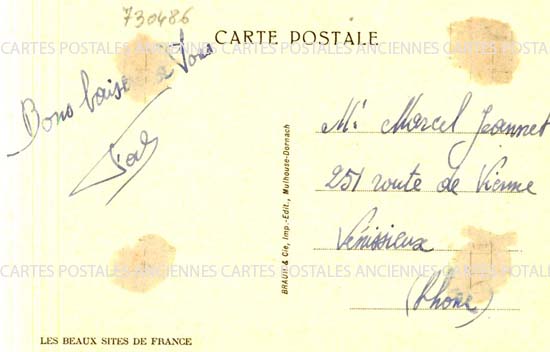 730486
CARTE POSTALE
CARTES POSTALES ANCIENNES CARTES POSTALES ANCIENNES CARTES
Bons baisers a Tous
Mr Marcel Jeannet
251 route de Vienne
Vénissieux
(Rhône)
BRAUN & Cie, Imp.-Edit., Mulhouse-Dornach
CARTES POSTALES ANCIENNES CARTES POSTALES ANCIENNES CARTES
LES BEAUX SITES DE FRANCE